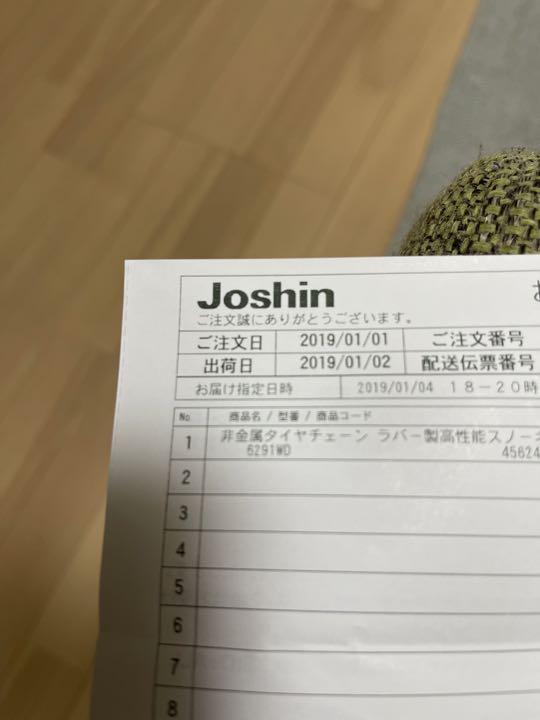 Joshin
ご注文誠にありがとうございます。
ご注文日 2019/01/01 ご注文番号
出荷日 2019/01/02 配送伝票番号
お届け指定日時 2019/01/04 18-20時
No 商品名 / 型番 / 商品コード
1 非金属タイヤチェーン ラバー製高性能スノー
6291WD 45624
2
3
4
5
6
7
8